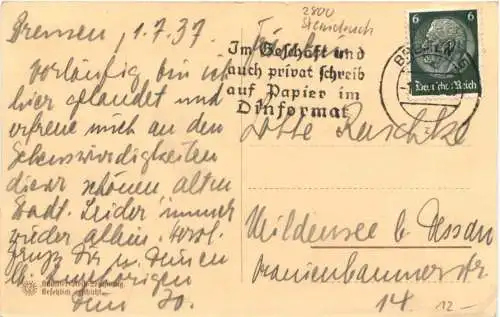 Bremen, 1.7.37.
Vorläufig bin ich
hier gelandet und
erfreue mich an den
Sehenswürdigkeiten
dieser schönen alten
Stadt. Leider immer
wieder allein. Herzl.
Gruß Dir u. Deinen
lb. Angehörigen
Dein
2800
Steindruck
Im Geschäft und
auch privat schreib
auf Papier im
Dinformat
6 6
Deutsches Reich
BREMEN
Lotte Raschke
Mildensee b. Dessau
Oranienbaumerstr
14.
12 —